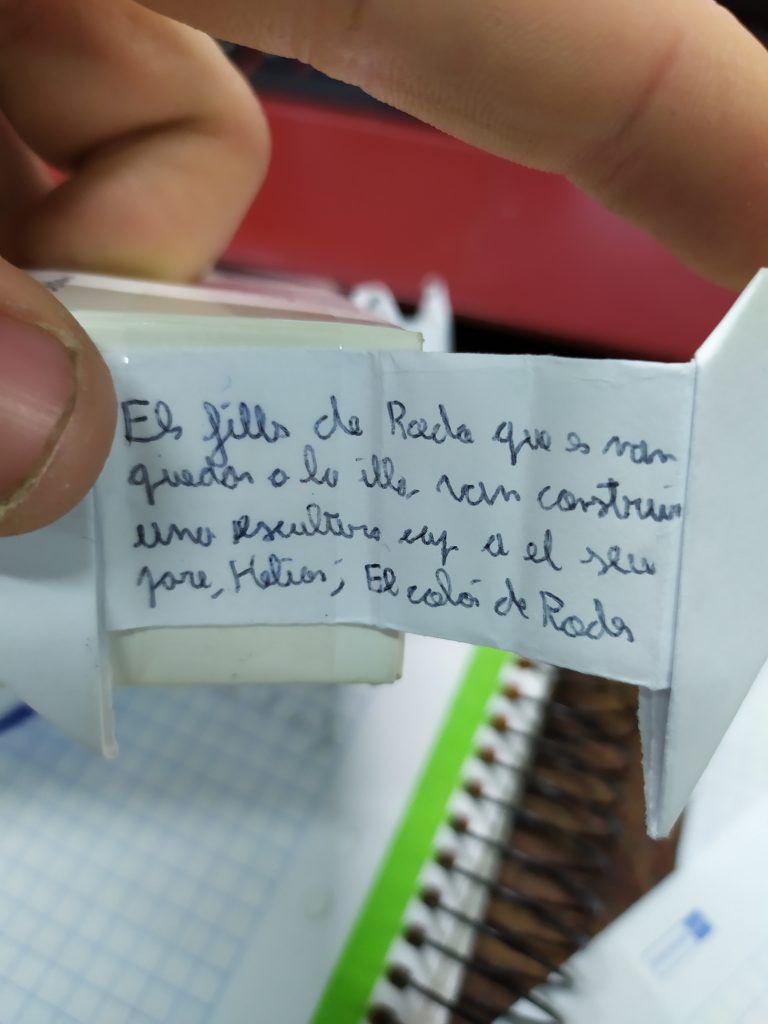 Els fills de Roda que es van
quedar a la illa, van construir
una escultura cap a el seu
pare, Helios; El colós de Rodes